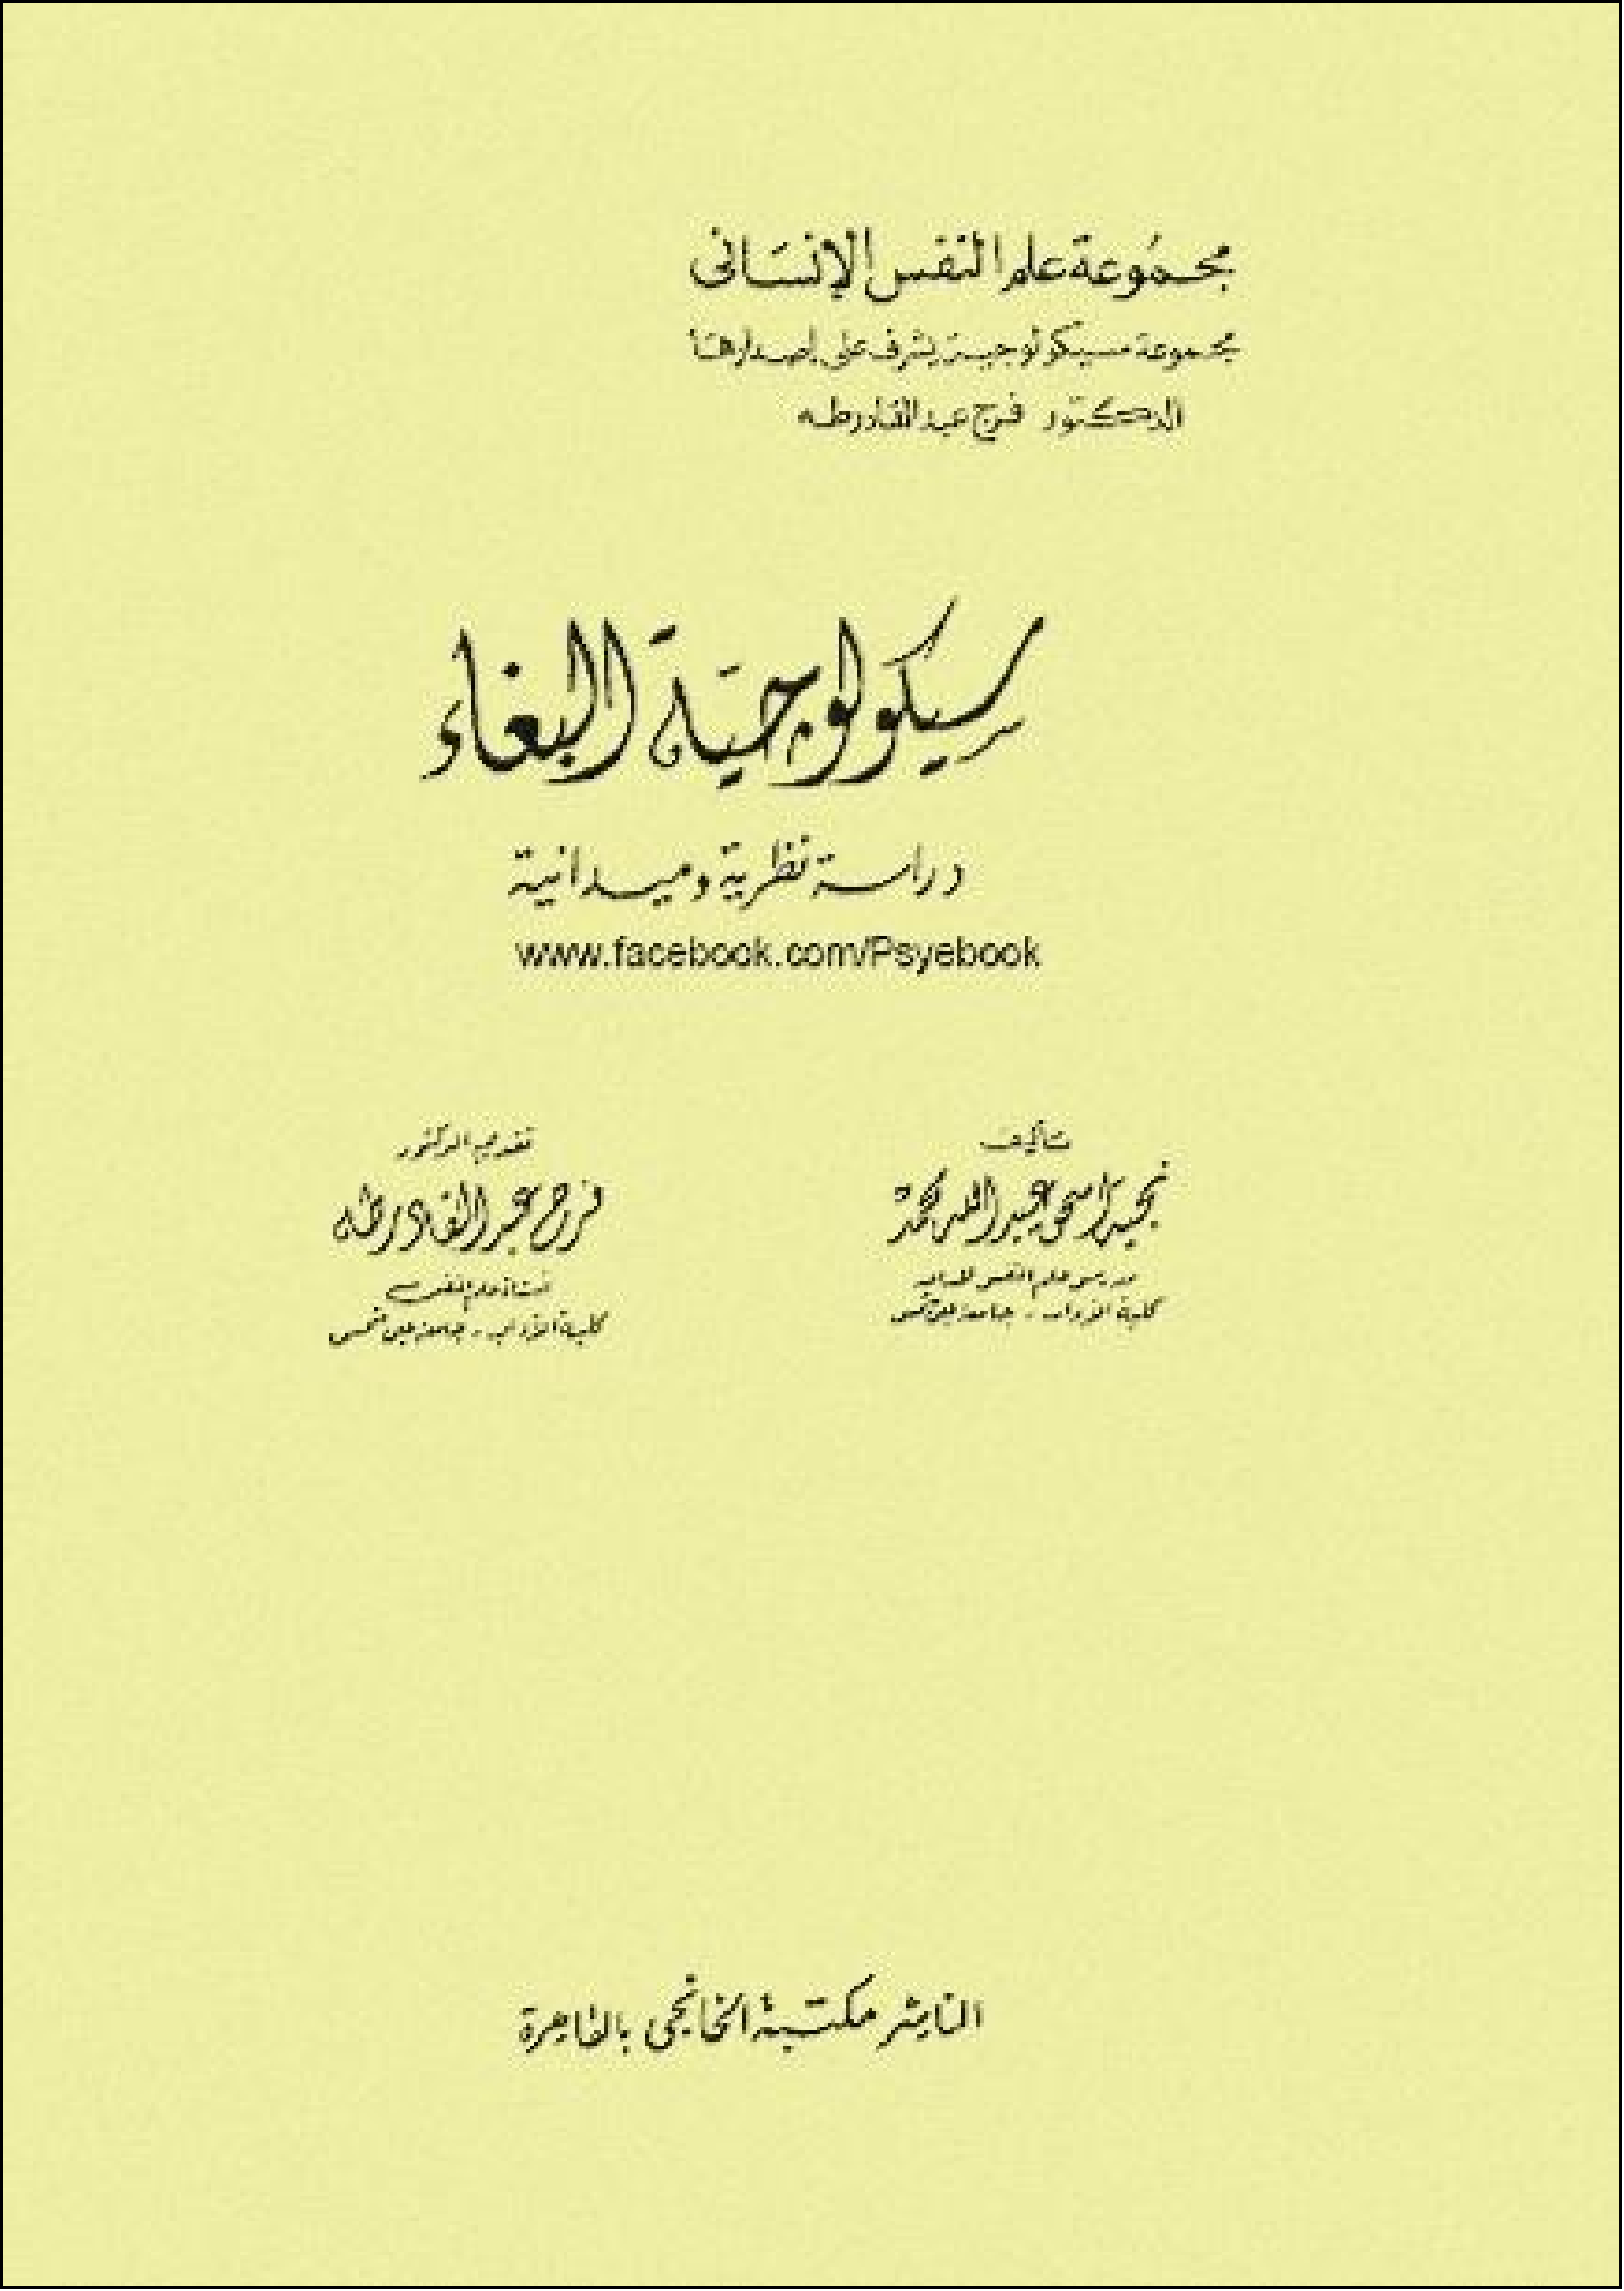 مجموعة علم النفس الإنسانى
مجموعة سيكولوجية يشرف على إصدارها
الدكتور فرج عبد القادر طه
سيكولوجية البغاء
دراسة نظرية وميدانية
www.facebook.com/Psyebook
تأليف
نجية إسحق عبد الله محمد
مدرس علم النفس المساعد
كلية الآداب - جامعة عين شمس
تقديم الدكتور
فرج عبد القادر طه
أستاذ علم النفس
كلية الآداب - جامعة عين شمس
الناشر مكتبة الخانجى بالقاهرة